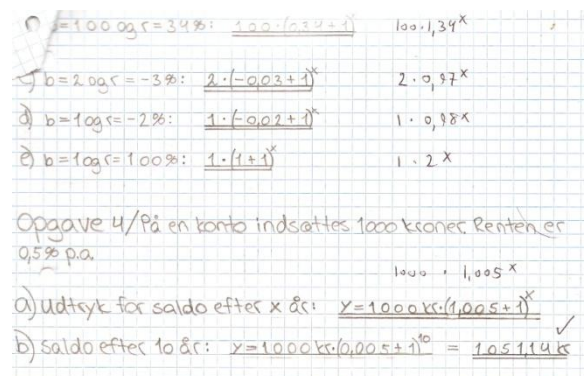 b=100 og r=34%: 100·(0,34+1)^x 100·1,34^x
c) b=2 og r=-3%: 2·(-0,03+1)^x 2·0,97^x
d) b=1 og r=-2%: 1·(-0,02+1)^x 1·0,98^x
e) b=1 og r=100%: 1·(1+1)^x 1·2^x
Opgave 4/På en konto indsættes 1000 kroner. Renten er
0,5% p.a.
1000 · 1,005^x
a) udtryk for saldo efter x år: y=1000kr·(1,005+1)^x
b) saldo efter 10 år: y=1000kr·(0,005+1)^10 = 1051,14kr ✓